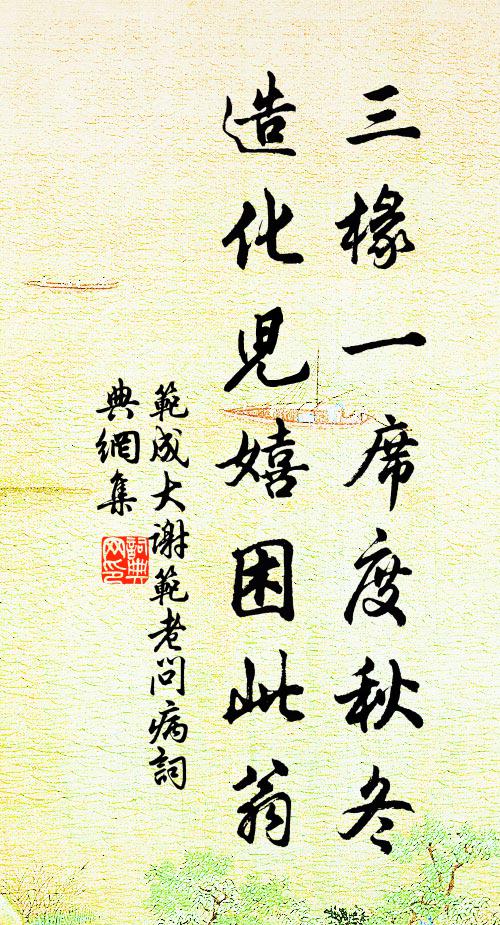 三椽一席度秋冬
造化兒嬉困此翁
範成大謝範老問病詞
典網集
詞典網印